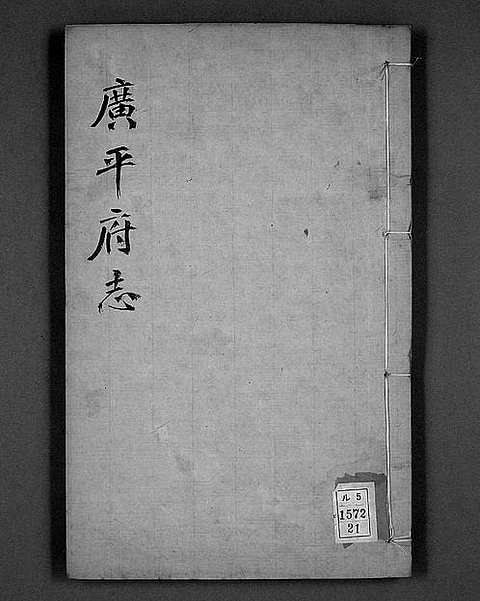 廣平府志
ル 5
1572
21